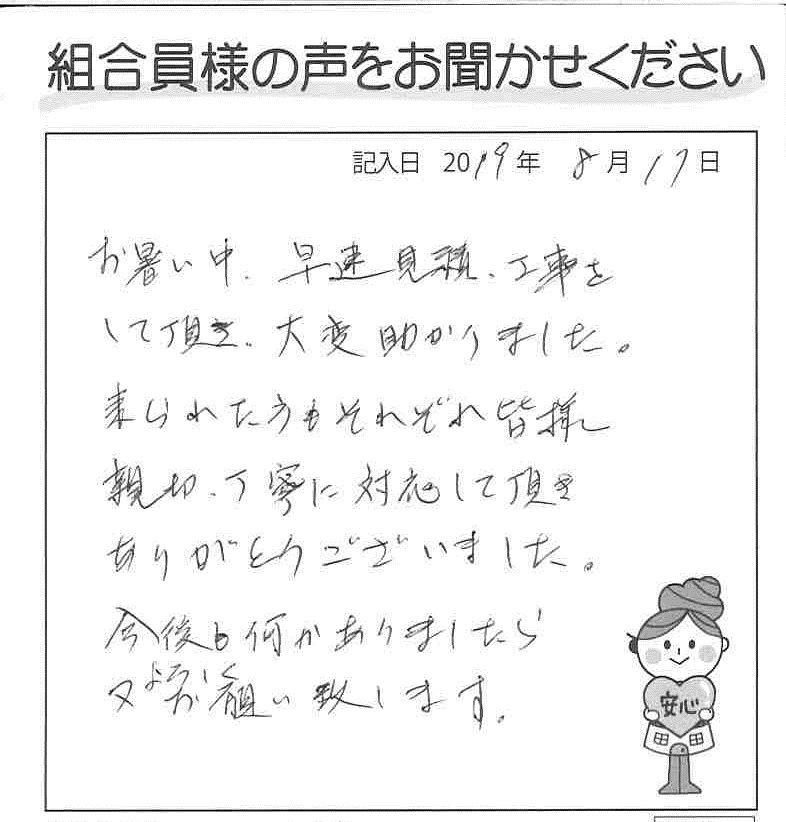 組合員様の声をお聞かせください
記入日 2019年 8月17日
お暑い中、早速見積、工事を
して頂き、大変助かりました。
来られた方もそれぞれ皆様
親切、丁寧に対応して頂き
ありがとうございました。
今後も何かありましたら
又よろしくお願い致します。
安心